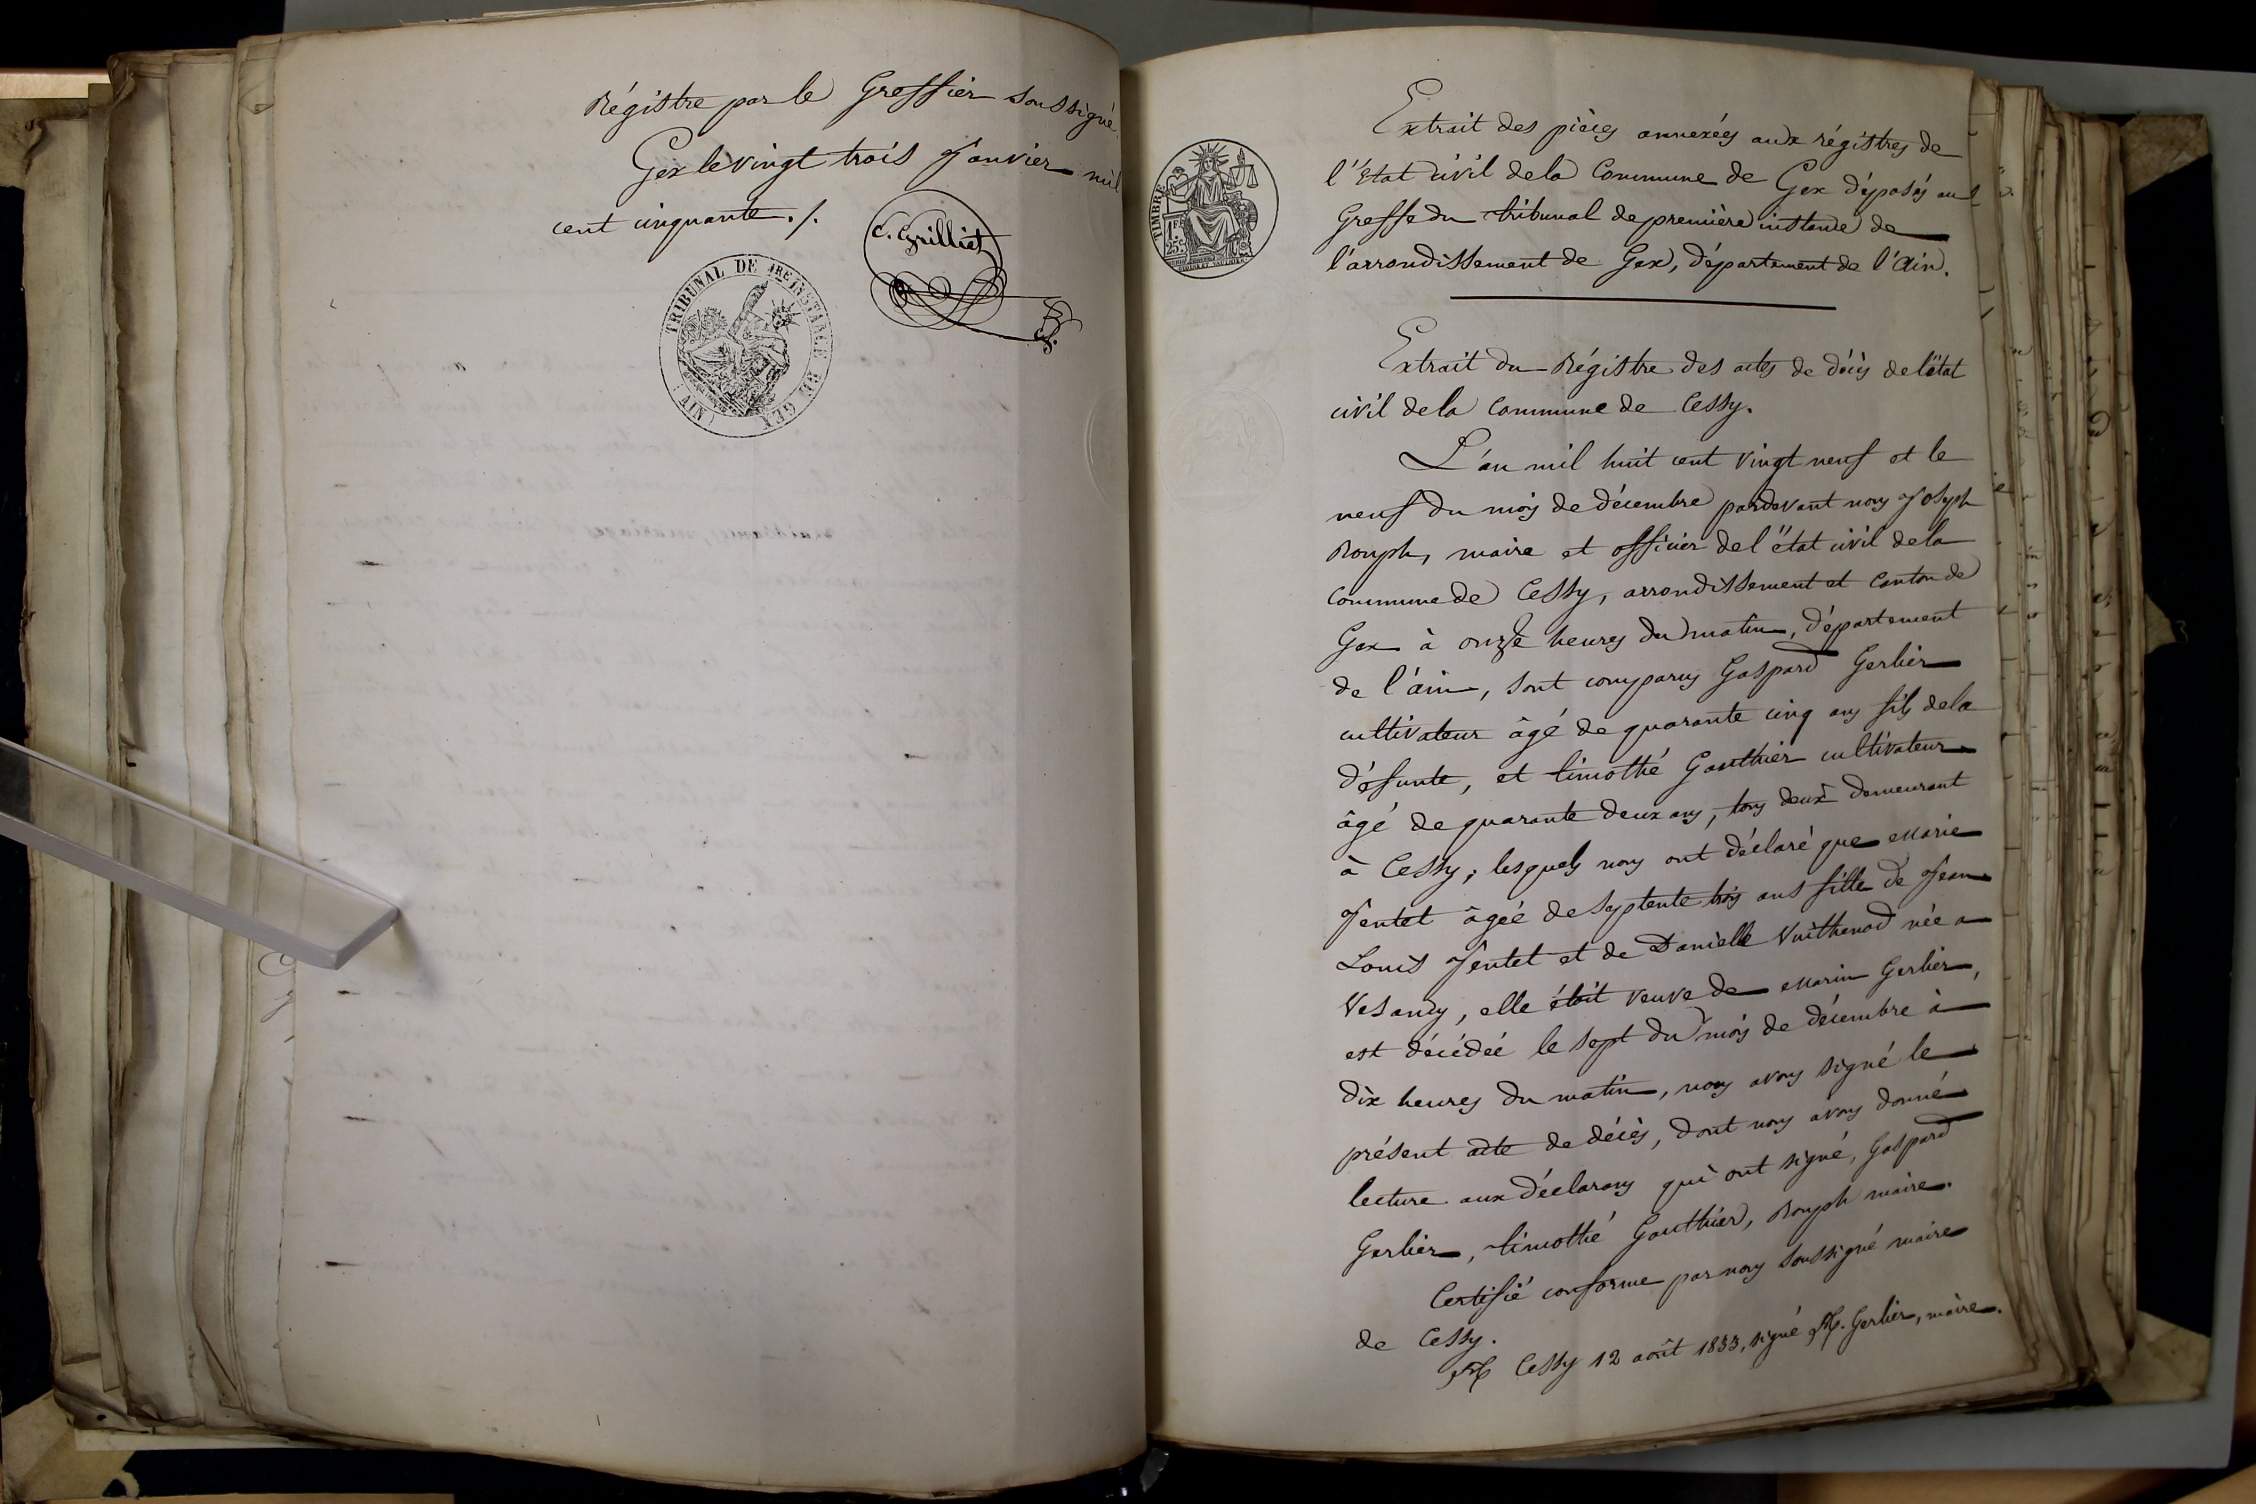 Régistre par le Greffier soussigné.
Gex le vingt trois Janvier mil
cent cinquante ./.
C. Grilliet
TRIBUNAL DE 1RE INSTANCE DE GEX
(AIN)
TIMBRE
1F.
25C
Extrait des pièces annexées aux régistres de
l'état civil de la Commune de Gex déposés au
Greffe du tribunal de première instance de
l'arrondissement de Gex, département de l'Ain.
Extrait du Régistre des actes de décès de l'état
civil de la Commune de Cessy.
L'an mil huit cent vingt neuf et le
neuf du mois de décembre pardevant nous Joseph
Rouph, maire et officier de l'état civil de la
Commune de Cessy, arrondissement et Canton de
Gex à onze heures du matin, département
de l'ain, sont comparus Gaspard Gerlier
cultivateur âgé de quarante cinq ans fils de la
défunte, et timothé Gauthier cultivateur
âgé de quarante deux ans, tous deux demeurant
à Cessy; lesquels nous ont déclaré que Marie
Jentet âgée de septente trois ans fille de Jean
Louis Jentet et de Danielle Vuithenod née a
Vesancy, elle était veuve de Marin Gerlier,
est décédée le sept du mois de décembre à
dix heures du matin, nous avons signé le
présent acte de décès, dont nous avons donné
lecture aux déclarans qui ont signé, Gaspard
Gerlier, timothé Gauthier, Rouph maire.
Certifié conforme par nous soussigné maire
de Cessy.
A Cessy 12 août 1833, signé A. Gerlier, maire.